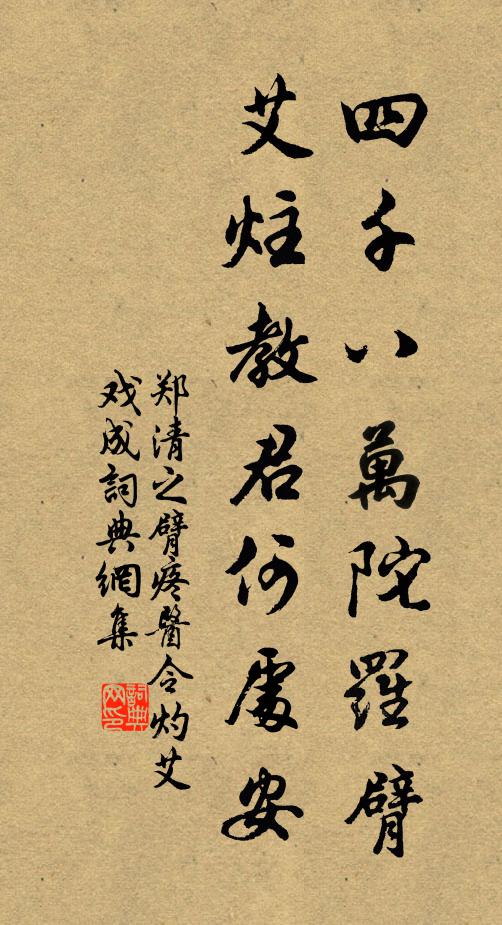 四千八萬陀羅臂
艾炷教君何處安
郑清之臂疼醫令灼艾
戏成詞典網集
詞典网印